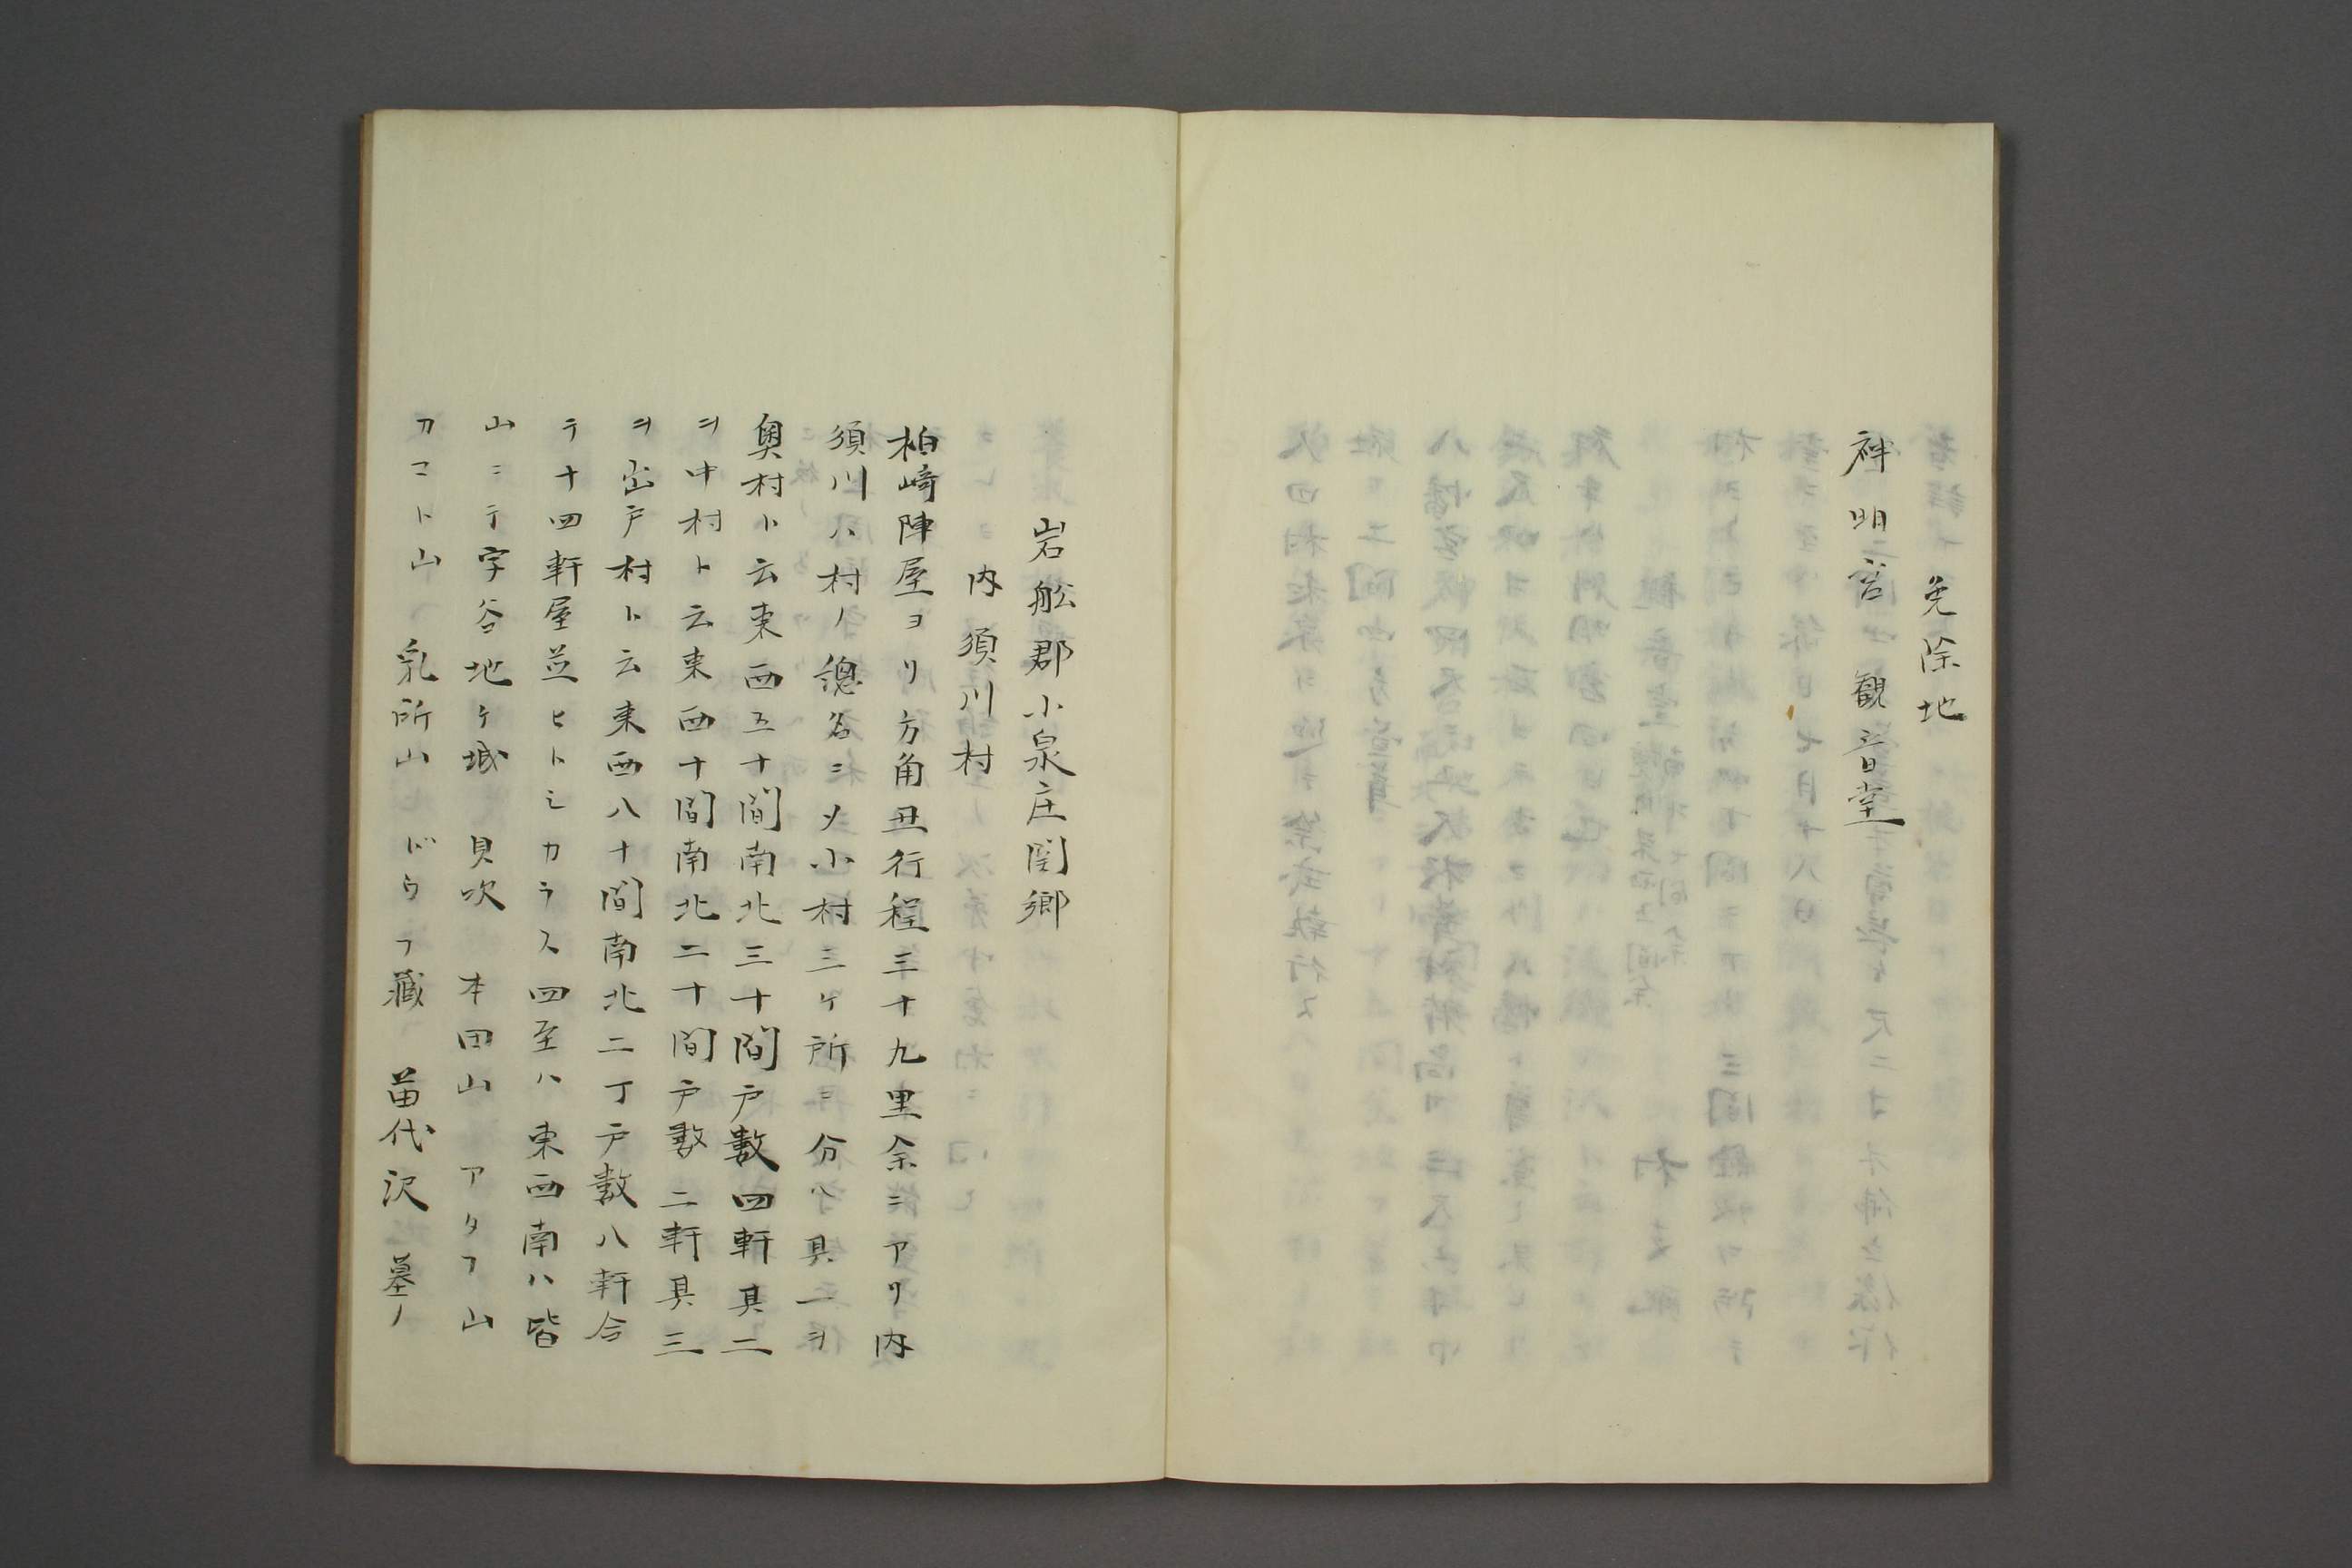 免除地
神明宮　観音堂
岩舩郡小泉庄関郷
内須川村
柏﨑陣屋ヨリ方角丑行程三十九里余ニアリ内
須川ハ村ノ總名ニメ小村三ケ所ヨ分ヘ具一ヲ
奥村ト云東西五十間南北三十間戸數四軒具二
ヲ中村ト云東西十間南北二十間戸數二軒具三
ヲ出戸村ト云東西八十間南北二丁戸數八軒合
テ十四軒屋並ヒトシカラス四至ハ東西南ハ皆
山ニテ字谷地ケ城　貝吹　本田山　アタフ山
カコト山　乳所山　ドウフ藏　苗代沢　墓ノ